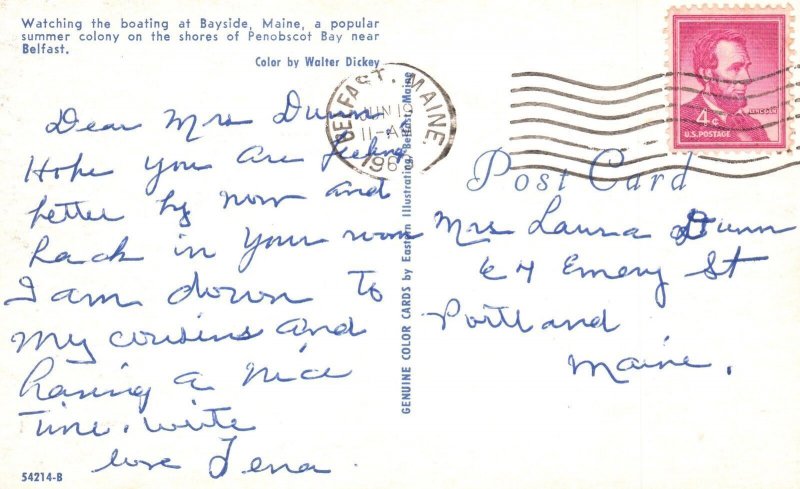 Watching the boating at Bayside, Maine, a popular
summer colony on the shores of Penobscot Bay near
Belfast.
Color by Walter Dickey
Dear Mrs Dunn
Hope you are feeling
better by now and
back in your room
I am down to
my cousins and
having a nice
time. write
love Lena
54214-B
GENUINE COLOR CARDS by Eastern Illustrating, Belfast, Maine
BELFAST, MAINE.
JUN 1
11-AM
196
4¢
LINCOLN
U.S. POSTAGE
Post Card
Mrs Laura Dunn
64 Emery St
Portland
Maine.